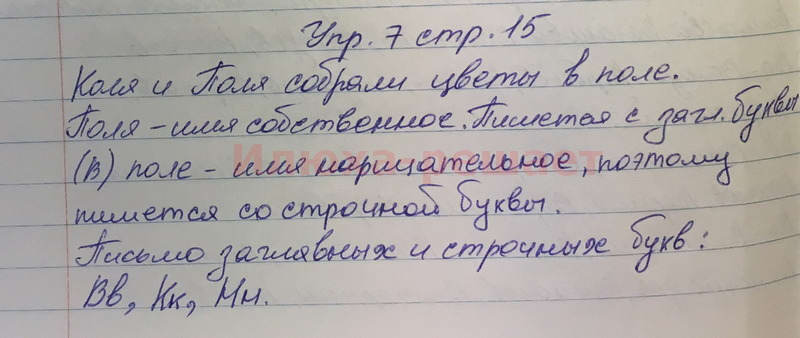 Упр. 7 стр. 15
Коля и Поля собрали цветы в поле.
Поля – имя собственное. Пишется с загл. буквы
(в) поле – имя нарицательное, поэтому
Илюха решает
пишется со строчной буквы.
Письмо заглавных и строчных букв:
Вв, Кк, Нн.